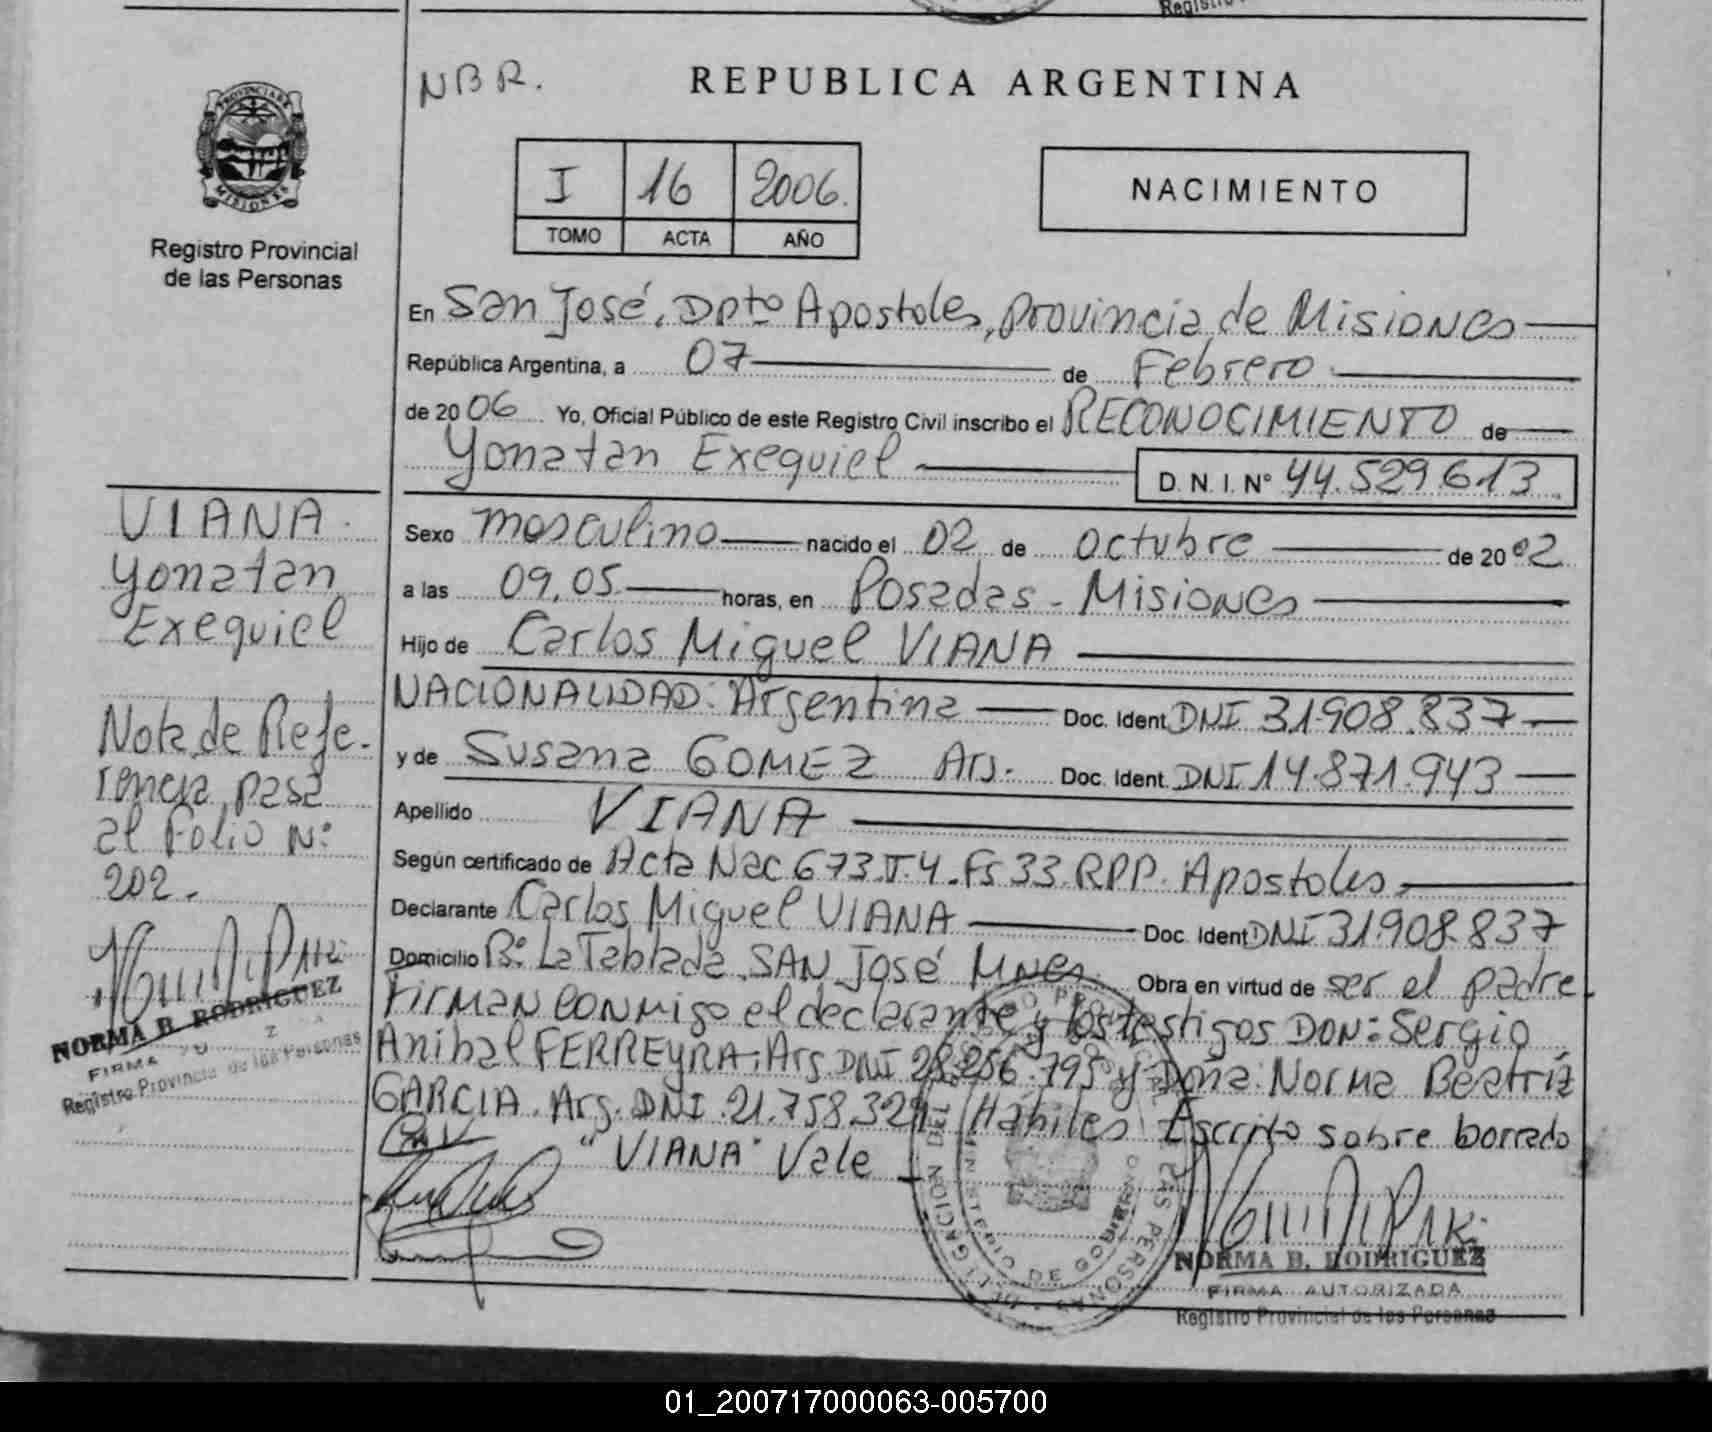 NBR.
REPUBLICA ARGENTINA
PROVINCIA DE
MISIONES
Registro Provincial
de las Personas
I 16 2006.
TOMO ACTA AÑO
NACIMIENTO
En San José, Dpto Apostoles, provincia de Misiones
República Argentina, a 07 de Febrero
de 2006 Yo, Oficial Público de este Registro Civil inscribo el RECONOCIMIENTO de
Yonatan Exequiel D.N.I. Nº 44.529.613
Sexo masculino nacido el 02 de octubre de 2002
a las 09,05 horas, en Posadas - Misiones
Hijo de Carlos Miguel VIANA
NACIONALIDAD: Argentina Doc. Ident. DNI 31.908.837
y de Susana GOMEZ Arg. Doc. Ident. DNI 14.871.943
Apellido VIANA
Según certificado de Acta Nac 673.T.4.Fs 33.RPP. Apostoles
Declarante Carlos Miguel VIANA Doc. Ident DNI 31.908.837
Domicilio Bº La Tablada SAN José Mnes. Obra en virtud de ser el padre.
Firman conmigo el declarante y los testigos DON: Sergio
Anibal FERREYRA, Arg DNI 28.256.795 y Doña: Norma Beatriz
GARCIA. Arg. DNI. 21.758.329 Habiles Escrito sobre borrado
"VIANA" Vale
VIANA.
Yonatan
Exequiel
Nota de Refe-
rencia pasa
al Folio Nº
202.
NORMA B. RODRIGUEZ
FIRMA
Registro Provincial de las Personas
NORMA B. RODRIGUEZ
FIRMA AUTORIZADA
Registro Provincial de las Personas
MINISTERIO DE GOBIERNO
01_200717000063-005700